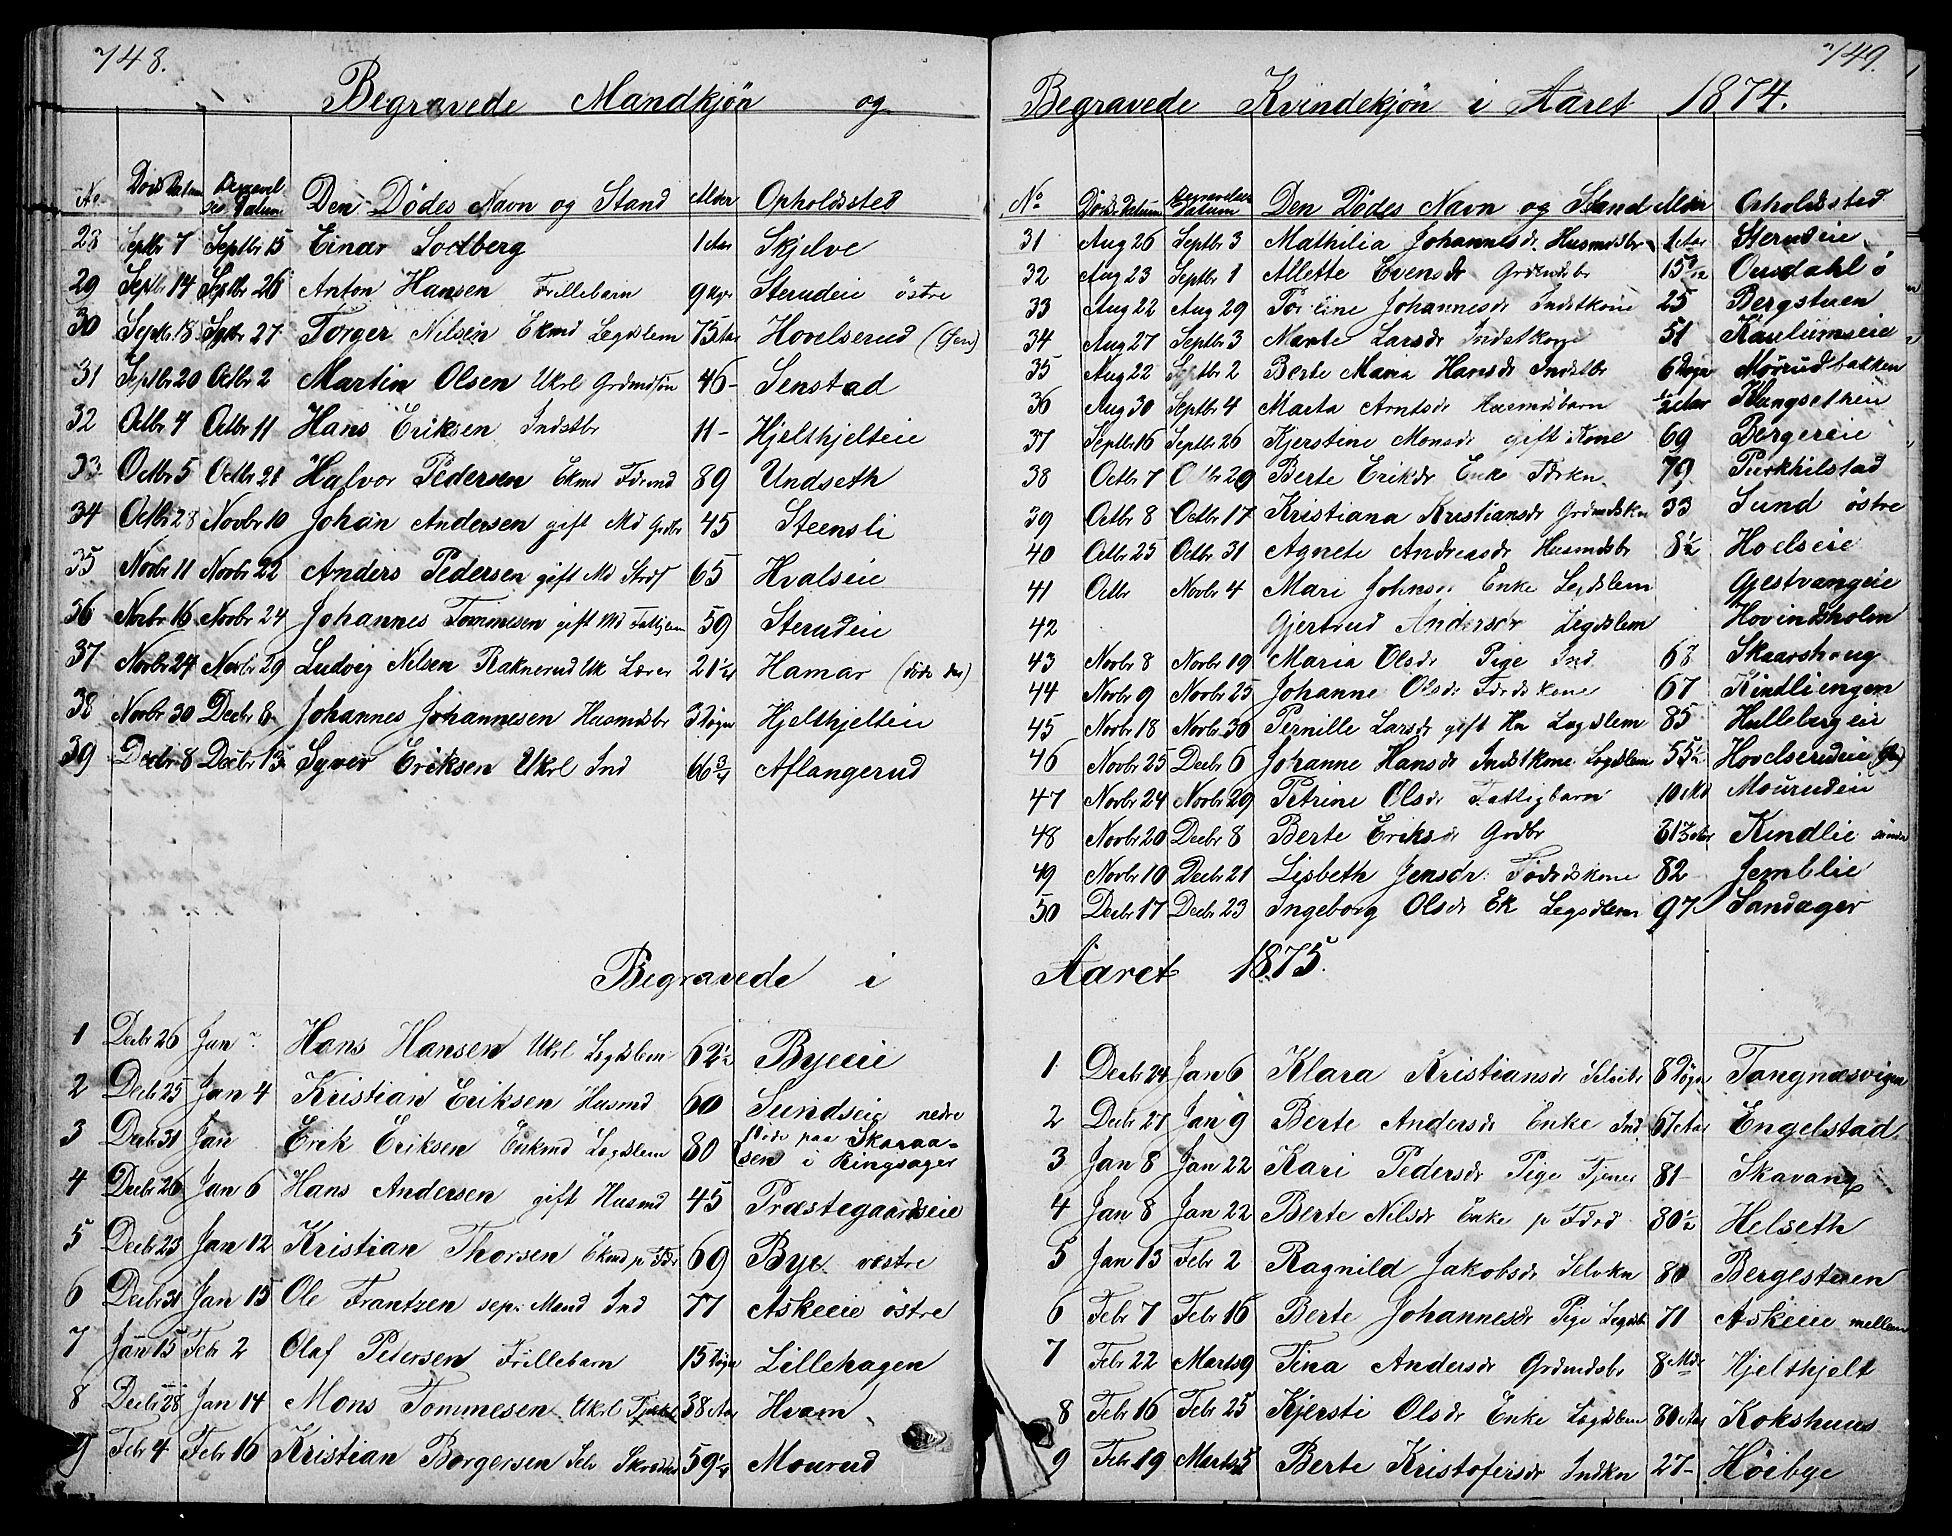 748.
Begravede Mandkjøn og
No Døds Datum Begravelses Datum Den Dødes Navn og Stand Alder Opholdssted
28 Septbr 7 Septbr 15 Einar Sodberg 1 Aar Skjelve
29 Septbr 14 Septbr 26 Anton Hansen Frillebarn 9 Uger Sterudeie östre
30 Septbr 18 Septbr 27 Torger Nilsen Ekmd Legdslem 75 Aar Hovelserud (Øen)
31 Septbr 20 Octbr 2 Martin Olsen Ukrl Grdmdsøn 46 - Senstad
32 Octbr 4 Octbr 11 Hans Eriksen Indstbr 11 - Hjelthjelteie
33 Octbr 5 Octbr 21 Halvor Pedersen Ekmd Fdrmd 89 Undseth
34 Octbr 28 Novbr 10 Johan Andersen gift Md Grdbr 45 Steensli
35 Novbr 11 Novbr 22 Anders Pedersen gift Md 65 Hvalseie
36 Novbr 16 Novbr 24 Johannes Tommesen gift Md 59 Sterudeie
37 Novbr 24 Novbr 29 Ludvig Nilsen Raknerud Uk Lærer 21 1/4 Hamar (döde der)
38 Novbr 30 Decbr 8 Johannes Johannesen Husmdsbr 3 Dögn Hjelthjelteie
39 Decbr 8 Decbr 13 Syver Eriksen Ukrl Ind 66 3/4 Aflangerud
Begravede i
1 Decbr 26 Jan Hans Hansen Ukrl Legdslem 62 1/2 Byeeie
2 Decbr 25 Jan 4 Kristian Eriksen Husmd 60 Sundseie nedre
3 Decbr 31 Jan Erik Eriksen Enkmd Legdslem 80 (döde paa Skaraa-
sen i Ringsager
4 Decbr 26 Jan 6 Hans Andersen gift Husmd 45 Præstegaardseie
5 Decbr 23 Jan 12 Kristian Thorsen Ekmd p. Fdr 69 Bye vestre
6 Decbr 31 Jan 15 Ole Frantzen sep. Mand Ind 77 Askeeie östre
7 Jan 15 Febr 2 Olaf Pedersen Frillebarn 15 Dögn Lillehagen
8 Decbr 28 Jan 14 Mons Tommesen Ukrl 38 Aar Hvam
9 Febr 4 Febr 16 Kristian Borgersen Selv 59 1/4 Mourud
749.
Begravede Kvindekjön i Aaret 1874.
No Döds Datum Begravelses Datum Den Dödes Navn og Stand Alder Opholdssted
31 Aug 26 Septbr 3 Mathilia Johannesdr Husmdsbr 1 Aar Sterudeie
32 Aug 23 Septbr 1 Allette Evensdr Grdmdsbr 15 Ousdahl ö
33 Aug 22 Aug 29 Johannesdr Indstkone 25 Bergstuen
34 Aug 27 Septbr 3 Marte Larsdr Indstkone 51 Kaulumseie
35 Aug 22 Septbr 2 Berte Maria Hansdr Indstbr 6 Dögn Mörudbakken
36 Aug 30 Septbr 4 Marta Arntsdr Husmdsbarn 1/2 Aar
37 Septbr 16 Septbr 26 Kjerstine Monsdr gift Kone 69 Bergereie
38 Octbr 7 Octbr 29 Berte Eriksdr Enke Fdrkn 79 Purkhilstad
39 Octbr 8 Octbr 17 Kristiana Kristiansdr Grdmdskn 33 Sund östre
40 Octbr 25 Octbr 31 Agnete Andreasdr Husmdsbr 8 1/2 Hoelseie
41 Octbr Novbr 4 Mari Johnsdr Enke Legdslem Gjestvangeie
42 Gjertrud Andersdr Legdslem Hovindsholm
43 Novbr 8 Novbr 19 Maria Olsdr Pige Ind 68 Skaarshoug
44 Novbr 9 Novbr 25 Johanne Olsdr Fdrdskone 67 Kindliengen
45 Novbr 18 Novbr 30 Pernille Larsdr gift Kn Legdslem 85 Hullebergeie
46 Novbr 25 Decbr 6 Johanne Hansdr Indstkone Legdslem 55 1/2 Hovelserudeie
47 Novbr 24 Novbr 29 Petrine Olsdr Fattigbarn 10 Md Mourudeie
48 Novbr 20 Decbr 8 Berte Eriksdr Grdbr Kindlie
49 Novbr 10 Decbr 21 Lisbeth Jensdr Föderådskone 82 Jemblie
50 Decbr 17 Decbr 23 Ingeborg Olsdr Ek Legdslem 97 Sandager
Aaret 1875.
1 Decbr 24 Jan 6 Klara Kristiansdr 8 Dögn Tangnæsvigen
2 Decbr 27 Jan 9 Berte Andersdr Enke Ind 67 Aar Engelstad
3 Jan 8 Jan 22 Kari Pedersdr Pige Tjener 81 - Skavang
4 Jan 8 Jan 22 Berte Nilsdr Enke p Fdrd 80 1/2 Helseth
5 Jan 13 Febr 2 Ragnild Jakobsdr Selvkn 80 Bergestuen
6 Febr 7 Febr 16 Berte Johannesdr Pige Legdsl 71 Askeeie mellem
7 Febr 22 Marts 9 Tina Andersdr Grdmdsbr 8 Mdr Hjelthjelt
8 Febr 16 Febr 25 Kjersti Olsdr Enke Legdslem 80 Aar Kokshuus
9 Febr 19 Marts 5 Berte Kristofersdr Indkn 27 - Höibye